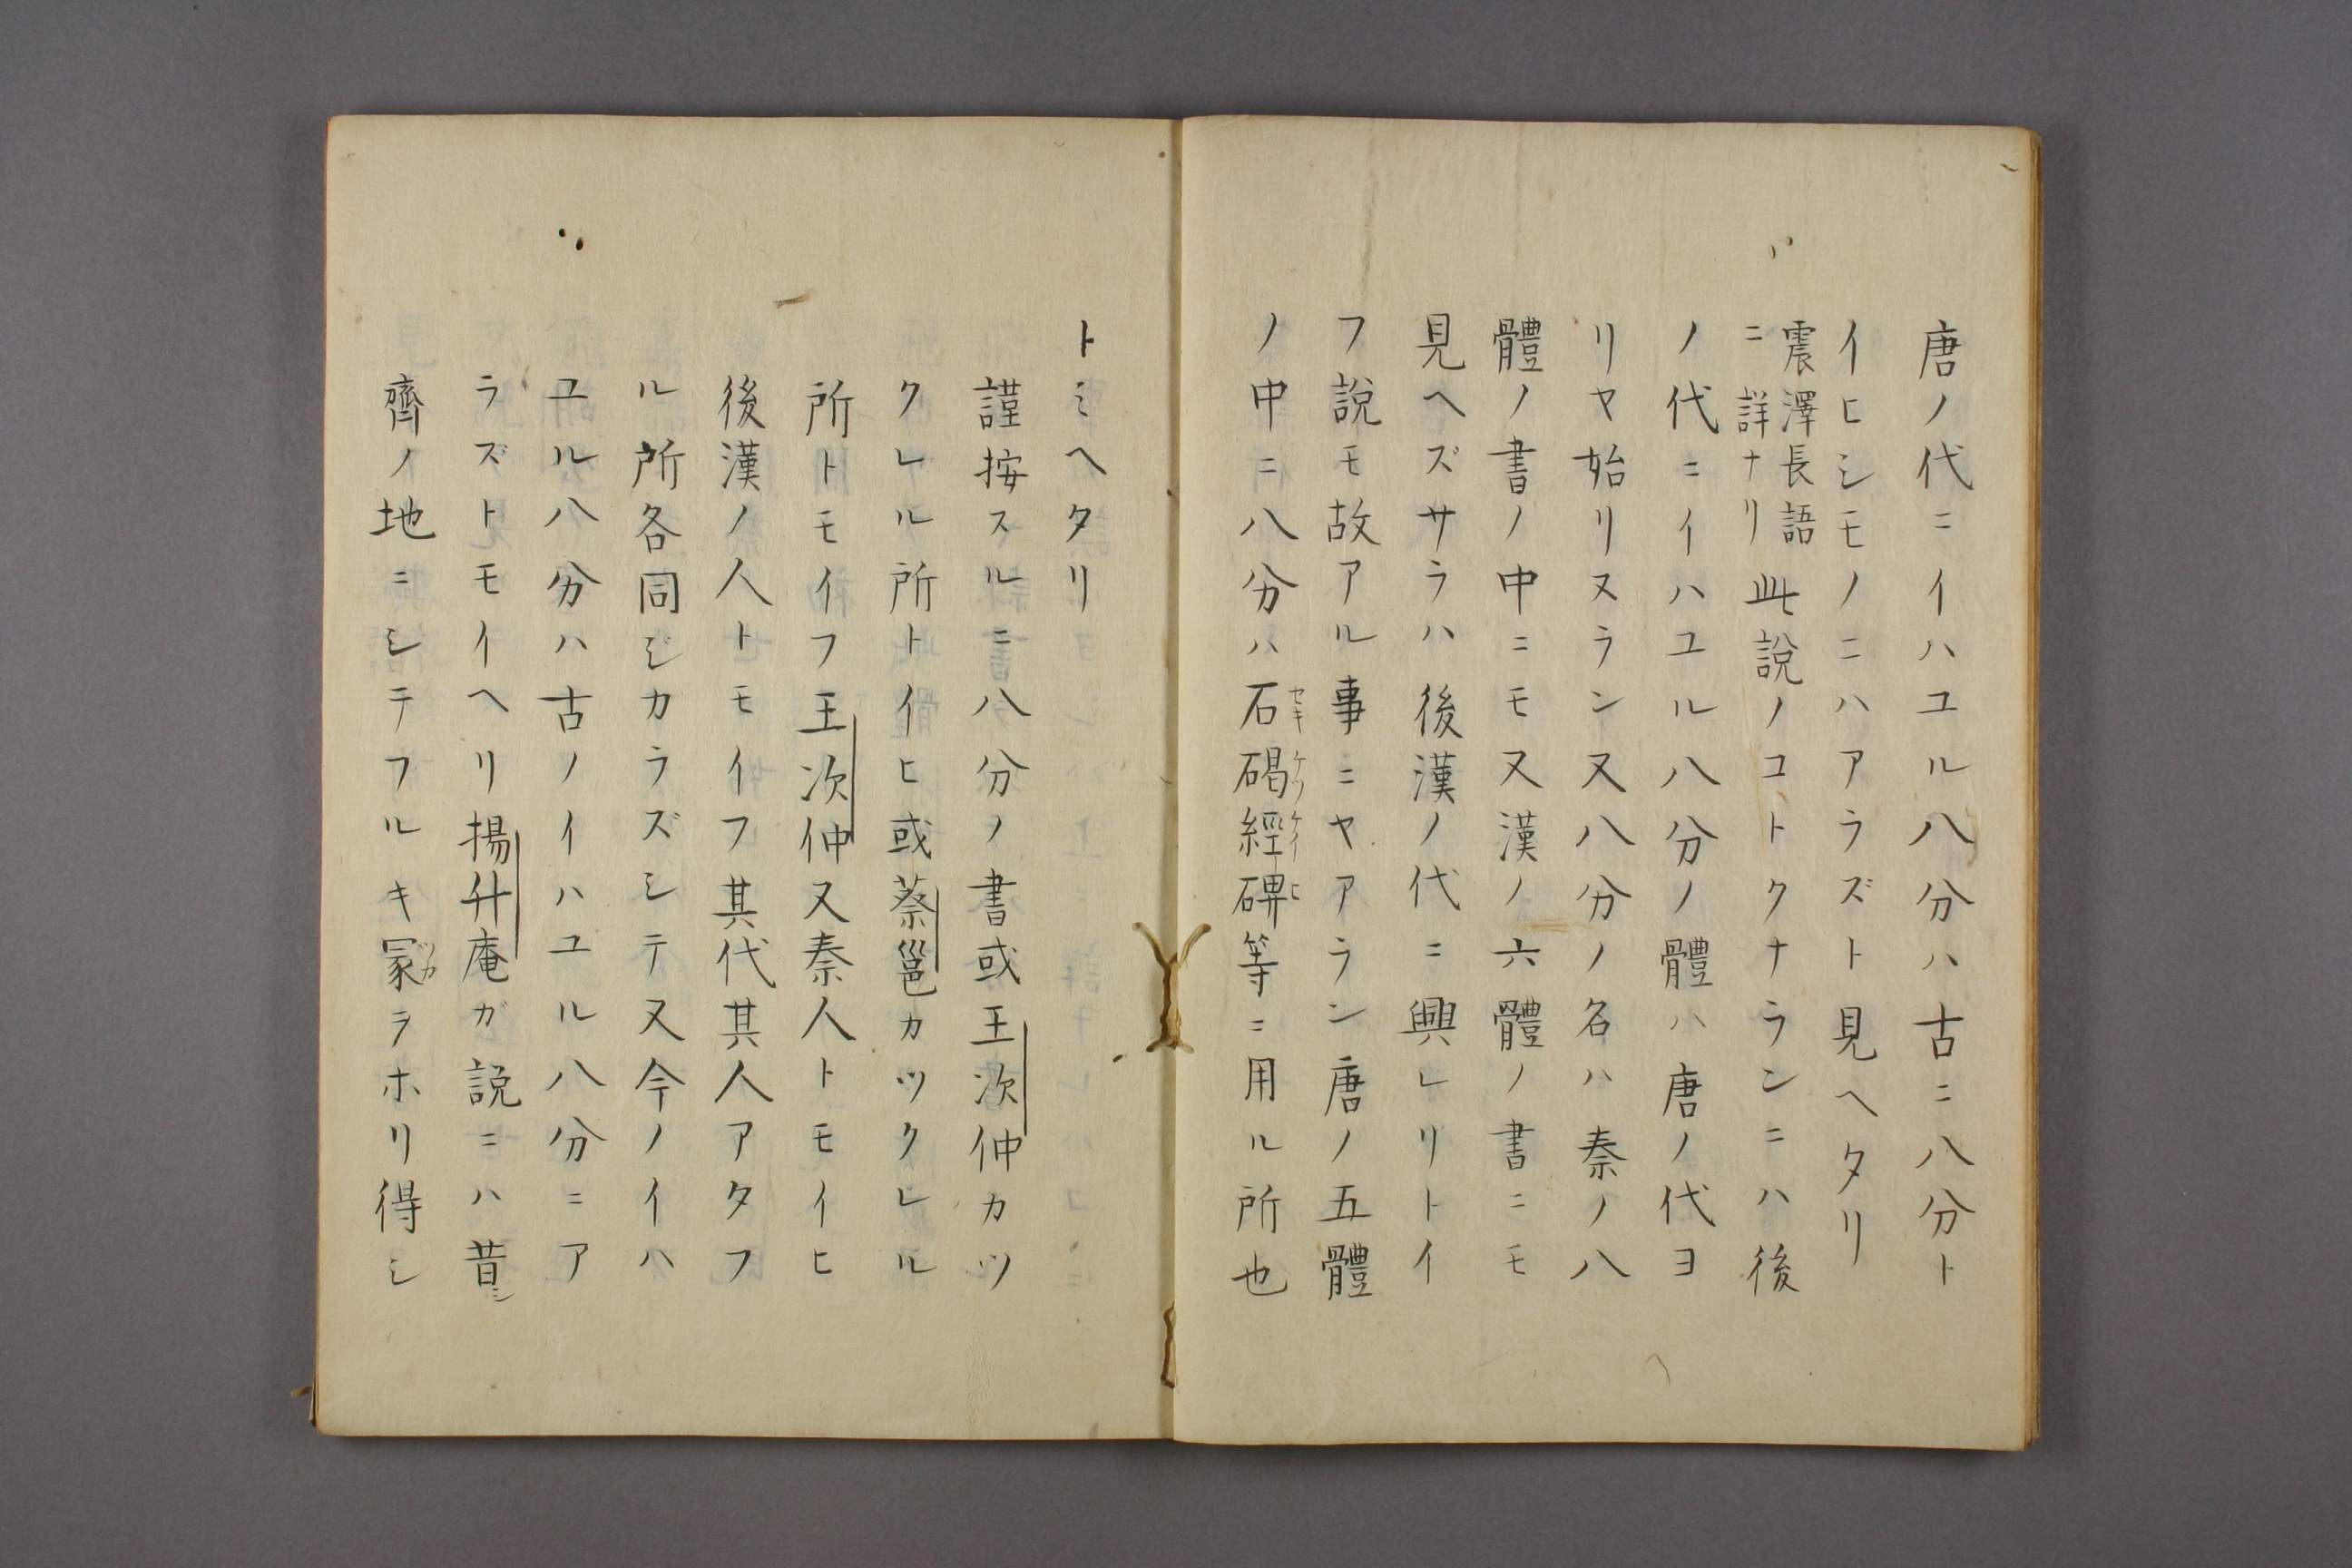 唐ノ代ニイハユル八分ハ古ニ八分ト
イヒシモノニハアラズト見ヘタリ
震澤長語
ニ詳ナリ
此説ノコトクナランニハ後
ノ代ニイハユル八分ノ體ハ唐ノ代ヨ
リヤ始リヌラン又八分ノ名ハ秦ノ八
體ノ書ノ中ニモ又漢ノ六體ノ書ニモ
見ヘズサラハ後漢ノ代ニ興レリトイ
フ説モ故アル事ニヤアラン唐ノ五體
ノ中ニ八分ハ石碣經碑等ニ用ル所也
セキ ケツ ケイ ヒ
トミヘタリ
謹按スルニ八分ノ書或王次仲カツ
クレル所トイヒ或蔡邕カツクレル
所トモイフ王次仲又秦人トモイヒ
後漢ノ人トモイフ其代其人アタフ
ル所各同ジカラズシテ又今ノイハ
ユル八分ハ古ノイハユル八分ニア
ラズトモイヘリ揚升庵ガ説ニハ昔シ
齊ノ地ニシテフルキ冡ヲホリ得シ
ツカ